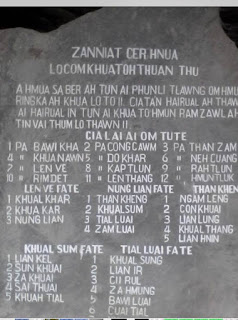 ZANNIAT CER HNUA
LOCOM KHUATOH THUAN THU
A HMUA SA BER AH TUN AI PHUNLI TLAWNG OM HMU
RINSKA AH KHUA LO TO !! CIATAN HAIRUAL AH THAW
AI HAIRUAL IN TUN AI KHUA TO HMUN RAM ZAWL AH
TIN VAI THUM LO THAWN !!
CIA LAI AI OM TUTE
1 PA BAWI KHA 2 PA CONG CAWM 3 PA THAN ZAM
4 " KHUA NAWN 5 " DO KHAR 6 " NEH CUANG
7 " LEN VE 8 " KAP TLUN 9 " RAH TLUN
10 " RIM DET 11 " LEN THANG 12 " HMUN TLUK
LEN VE FATE NUNG LIAN FATE THAN KHEN
1 KHUAL KHAR 1 THAN KHENG 1 NGAM LENG
2 KHUA KAR 2 KHUAL SUM 2 CON KHUAI
3 NUNG LIAN 3 TIAL LUAI 3 LIAN LUNG
4 ZAM LUAI 4 KHUAL THANG
5 LIAN HNIN
KHUAL SUM FATE TIAL LUAI FATE
1 LIAN KEL 1 KHUAL SUNG
2 SUN KHUAI 2 LIAN IR
3 ZA KHUAI 3 CII RUL
4 SAI THUAI 4 ZA HMUNG
5 KHUAH TIAL 5 BAWI LUAI
6 CUAI TIAL